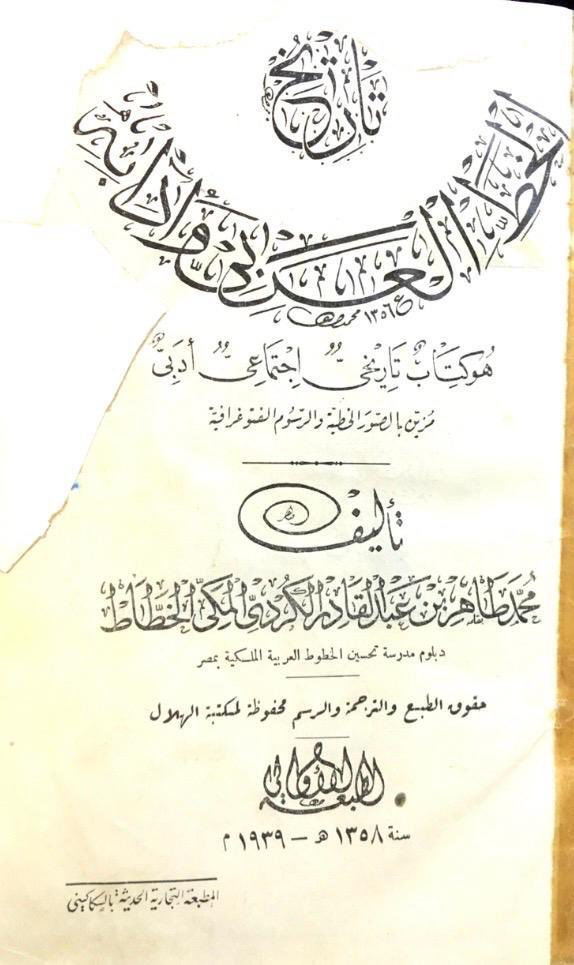 تاريخ
الخط العربي وآدابه
١٣٥٦
هُوَ كِتَابٌ تَارِيخِيٌّ إِجْتِمَاعِيٌّ أَدَبِيٌّ
مزين بالصور الخطية والرسوم الفتوغرافية
تأليف
محمد طاهر بن عبد القادر الكردي المكي الخطاط
دبلوم مدرسة تحسين الخطوط العربية الملكية بمصر
حقوق الطبع والترجمة والرسم محفوظة لمكتبة الهلال
الطبعة الأولى
سنة ١٣٥٨ هـ – ١٩٣٩ م
المطبعة التجارية الحديثة بالسكاكيني